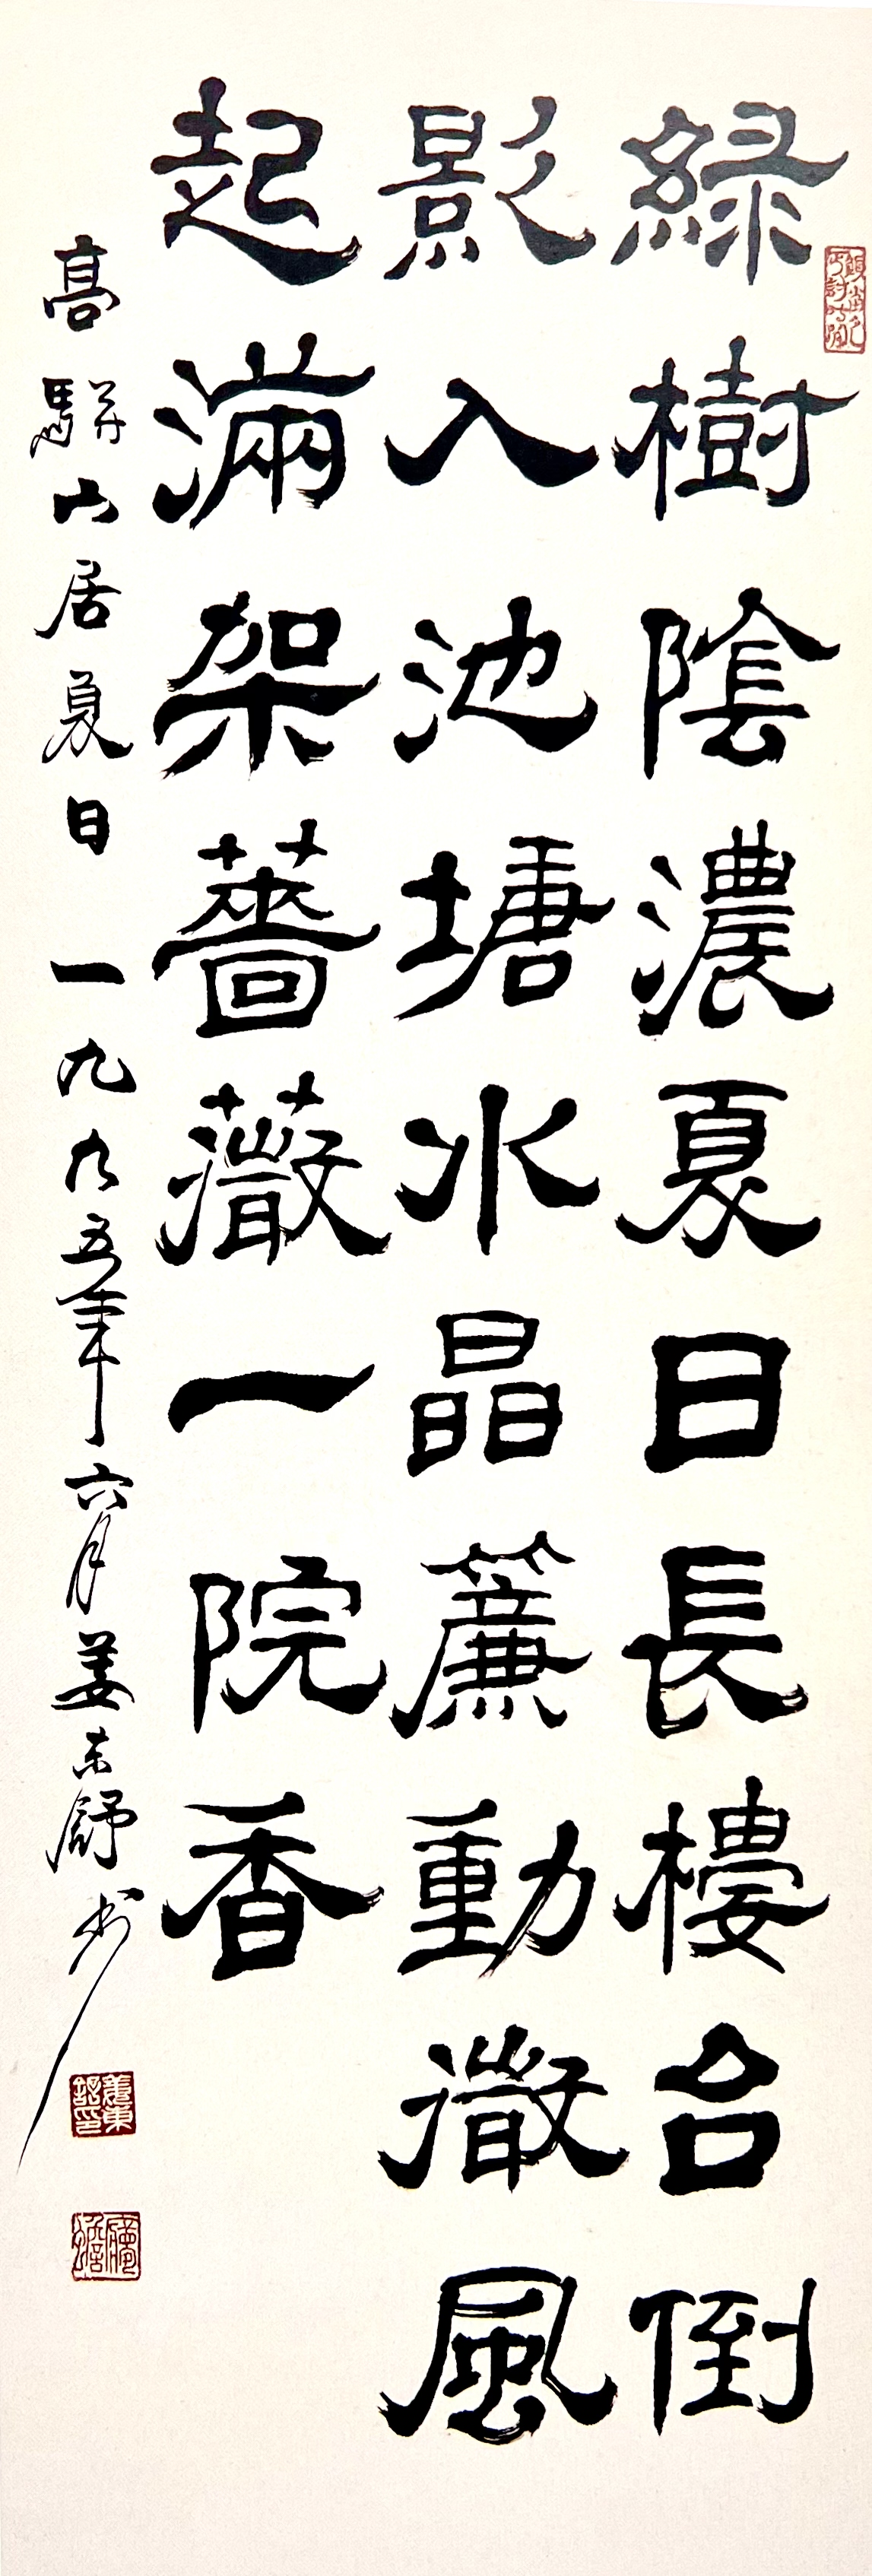 綠樹陰濃夏日長樓台倒
影入池塘水晶簾動微風
起滿架薔薇一院香
高駢山居夏日 一九九五年六月姜东舒书